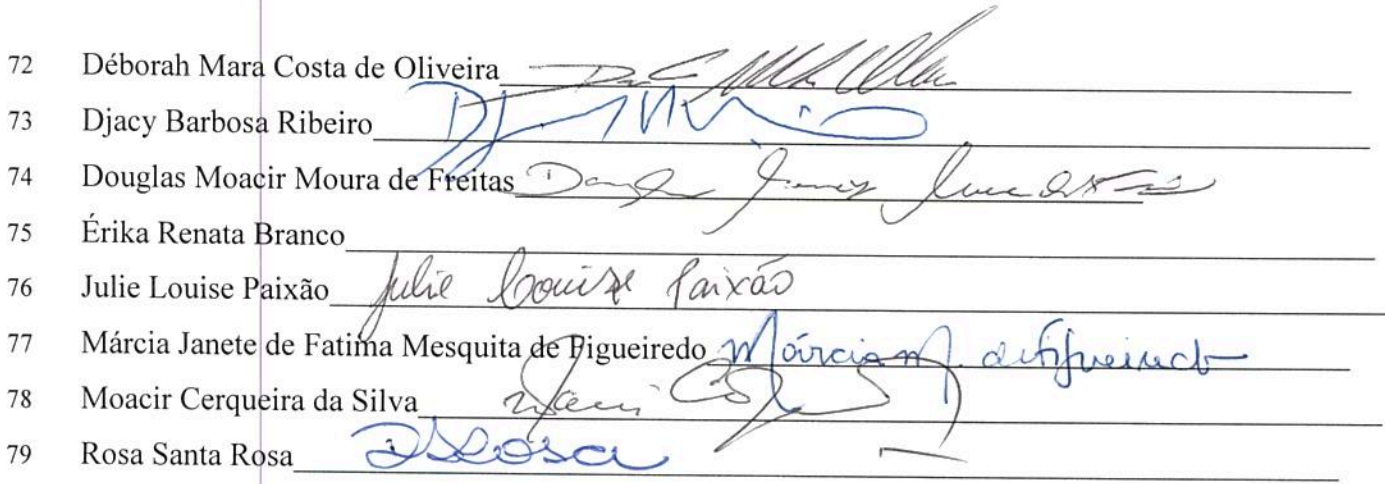 72 Déborah Mara Costa de Oliveira
73 Djacy Barbosa Ribeiro
74 Douglas Moacir Moura de Freitas
75 Érika Renata Branco
76 Julie Louise Paixão Julie Louise Paixão
77 Márcia Janete de Fatima Mesquita de Figueiredo Márcia M. de Figueiredo
78 Moacir Cerqueira da Silva
79 Rosa Santa Rosa